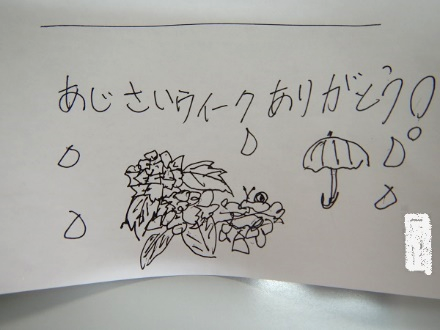 あじさいウィーク ありがとう